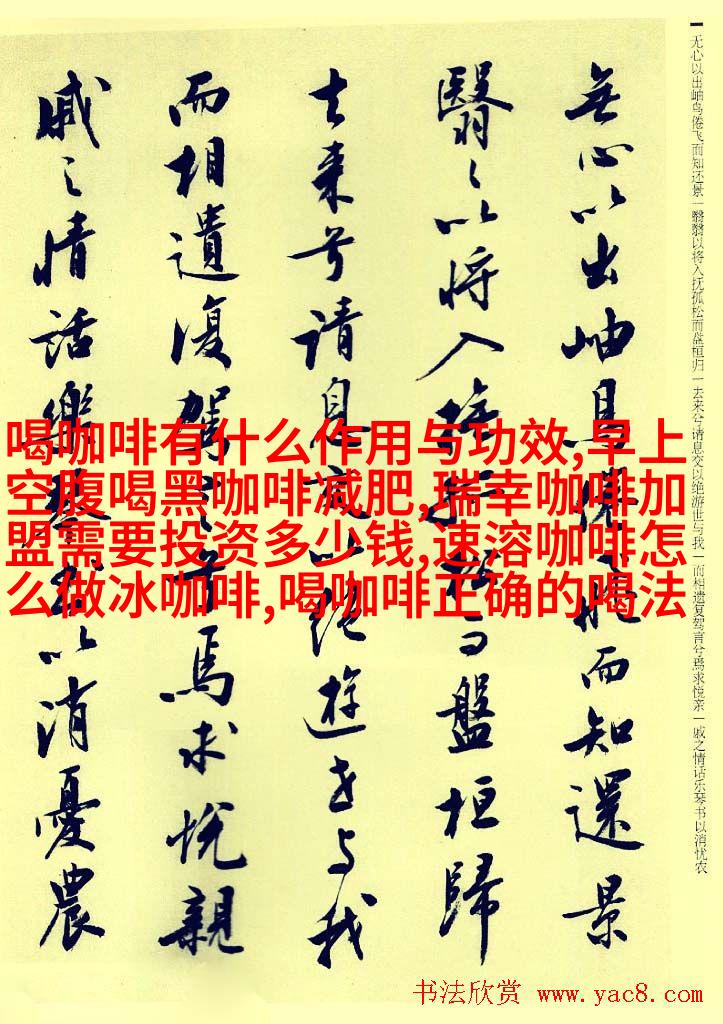 无心以出岫鸟倦飞而知还景一翳翳以将入抚孤松而盘桓归一去来兮请息交以绝游世与我一而相遗复驾言兮焉求悦亲一戚之情话乐琴书以消忧农
無心以出岫鳥倦飛而知還景
翳々以将入撫孤松而盤桓歸
去来兮请息交以绝遊世与我
而相遺復駕言兮焉求悦親
戚之情話樂琴書以消憂農
喝咖啡有什么作用与功效,早上
空腹喝黑咖啡减肥,瑞幸咖啡加
盟需要投资多少钱,速溶咖啡怎
么做冰咖啡,喝咖啡正确的喝法
书法欣赏 www.yac8.com